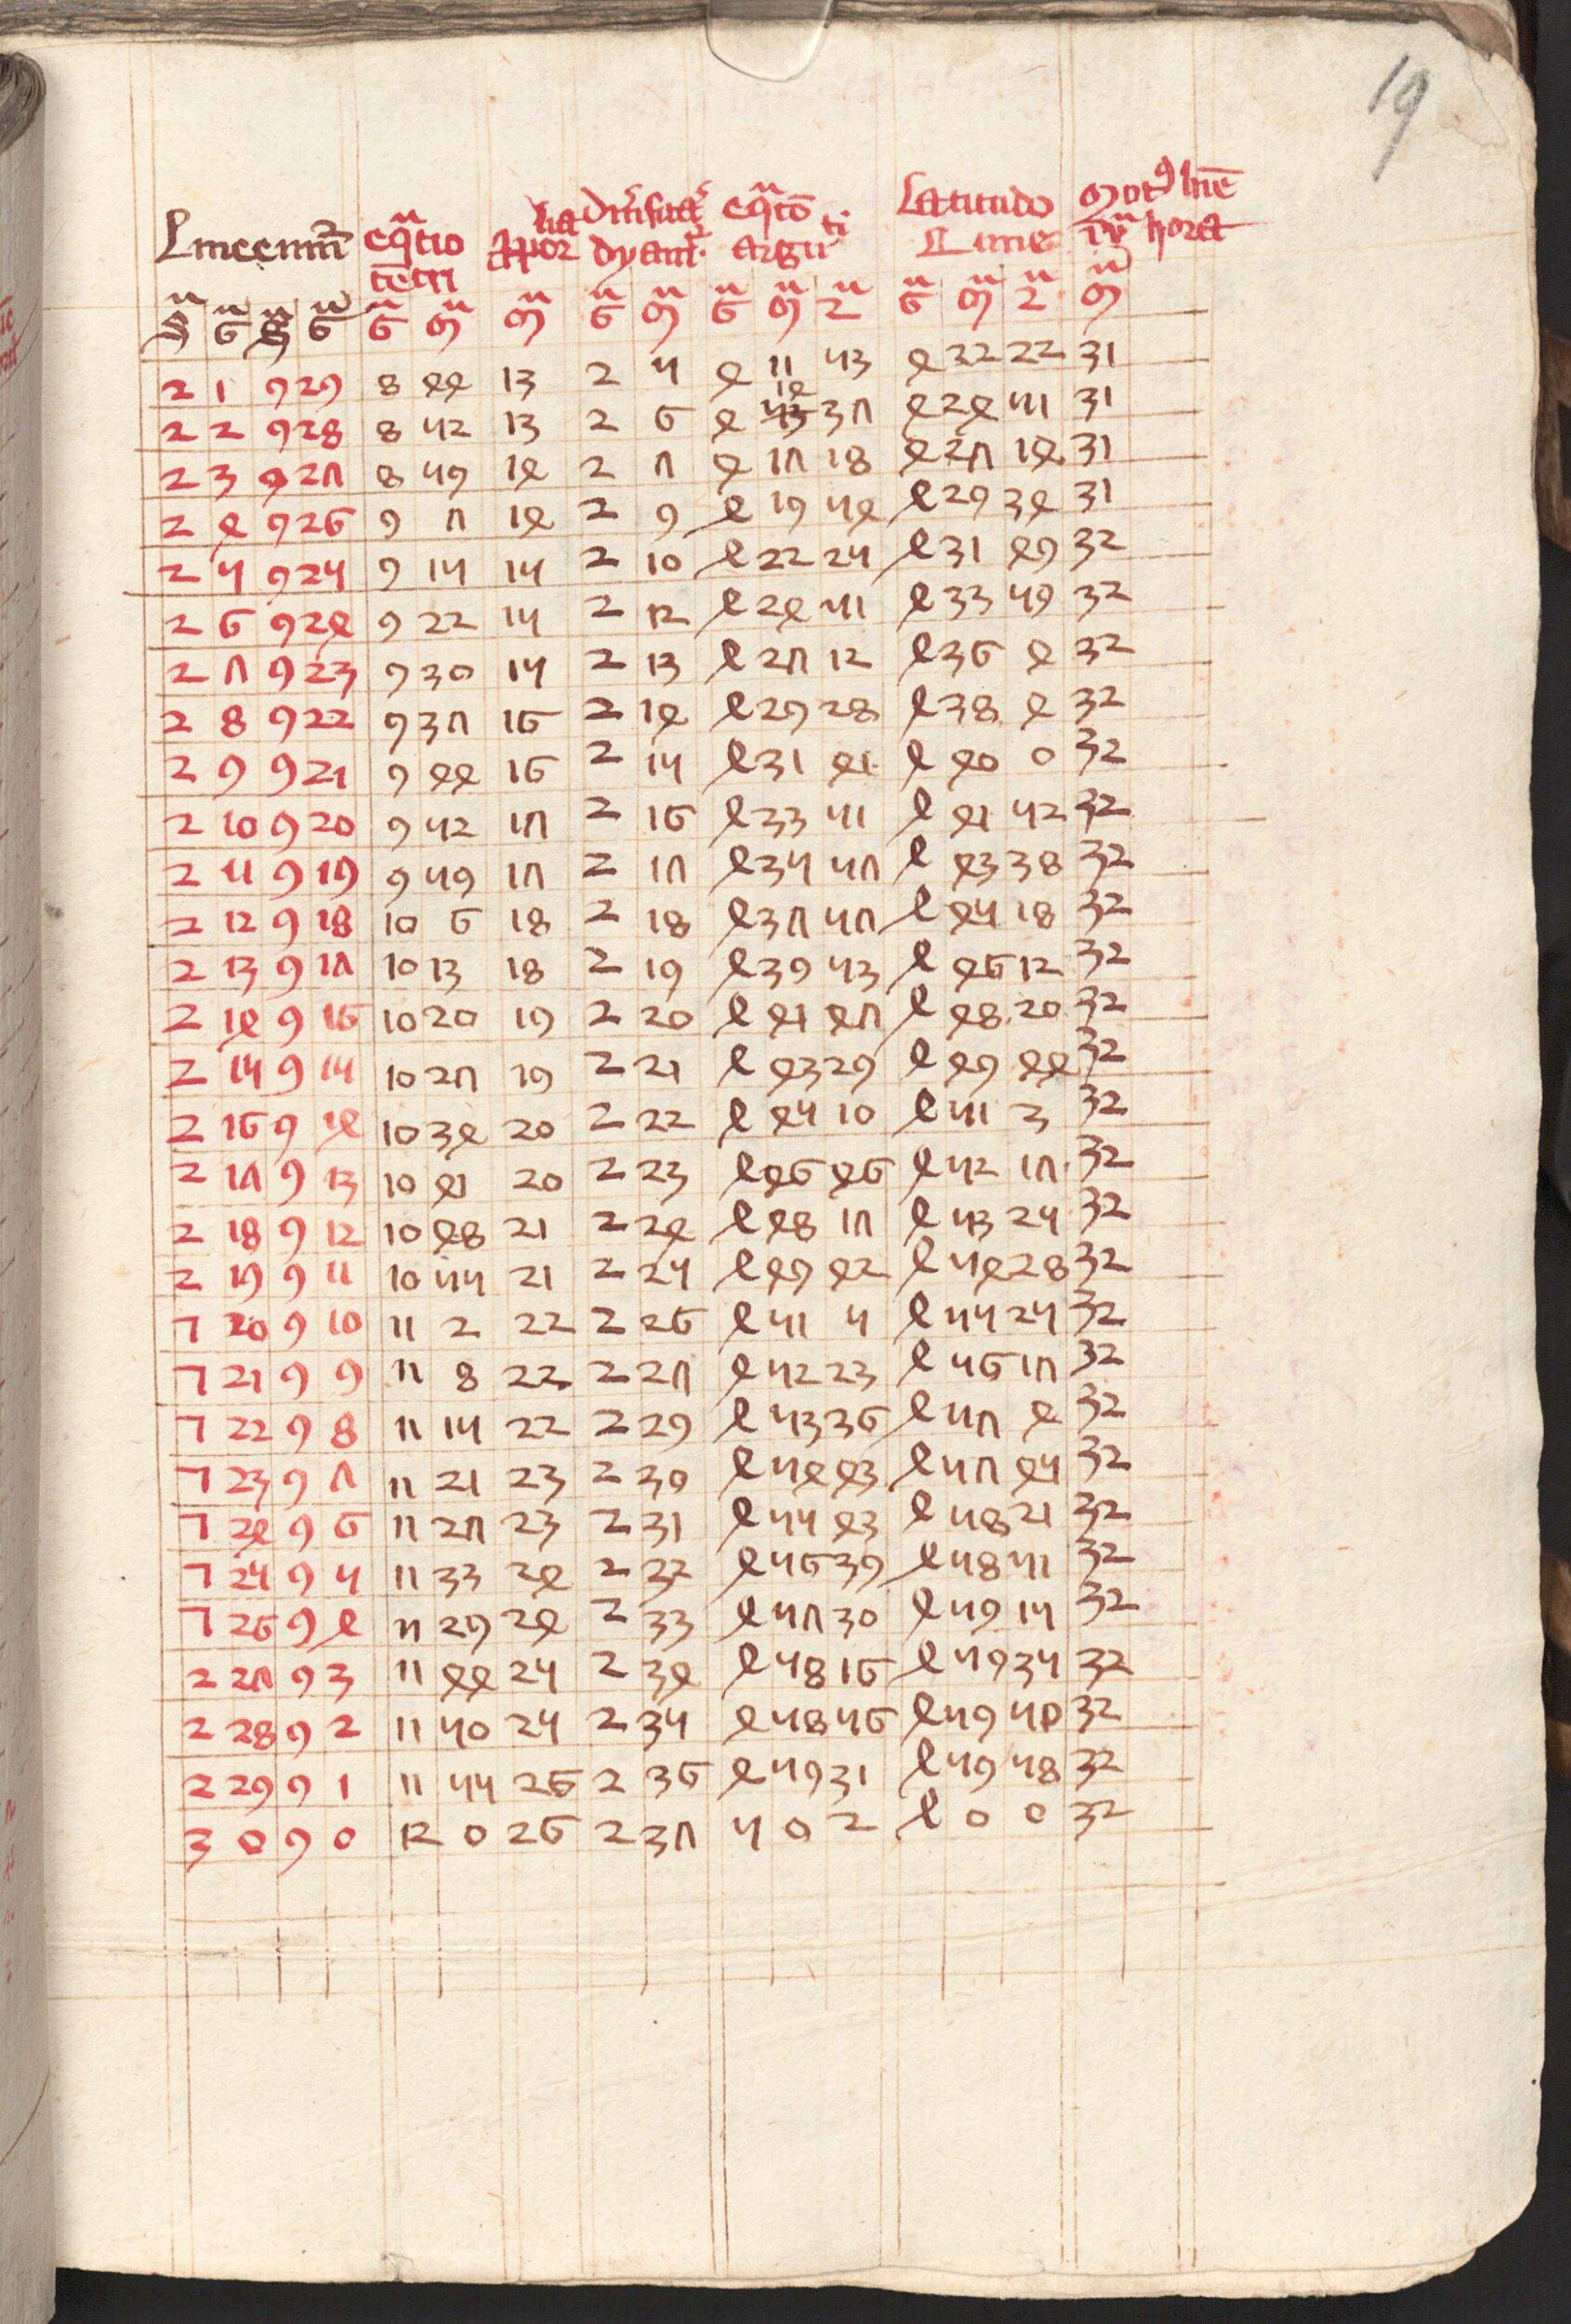 19
Lineenumeri equatio lia diversitas equato Latitudo mot9 lune
centri ppor dyamet argumenti Lune in hora
S G S G G m m G m G m 2 G m 2 m
2 1 9 29 8 44 13 2 5 4 11 53 4 22 22 31
2 2 9 28 8 52 13 2 6 4 14 37 4 24 51 31
2 3 9 27 8 59 14 2 7 4 17 18 4 27 14 31
2 4 9 26 9 7 14 2 9 4 19 54 4 29 34 31
2 5 9 25 9 15 15 2 10 4 22 25 4 31 49 32
2 6 9 24 9 22 15 2 12 4 24 51 4 33 59 32
2 7 9 23 9 30 15 2 13 4 27 12 4 36 4 32
2 8 9 22 9 37 16 2 14 4 29 28 4 38 4 32
2 9 9 21 9 44 16 2 15 4 31 41 4 40 0 32
2 10 9 20 9 52 17 2 16 4 33 51 4 41 52 32
2 11 9 19 9 59 17 2 17 4 35 57 4 43 38 32
2 12 9 18 10 6 18 2 18 4 37 57 4 45 18 32
2 13 9 17 10 13 18 2 19 4 39 53 4 46 12 32
2 14 9 16 10 20 19 2 20 4 41 47 4 48 20 32
2 15 9 15 10 27 19 2 21 4 43 29 4 49 44 32
2 16 9 14 10 34 20 2 22 4 45 10 4 51 3 32
2 17 9 13 10 41 20 2 23 4 46 46 4 52 17 32
2 18 9 12 10 48 21 2 24 4 48 17 4 53 25 32
2 19 9 11 10 55 21 2 25 4 49 42 4 54 28 32
2 20 9 10 11 2 22 2 26 4 51 5 4 55 25 32
2 21 9 9 11 8 22 2 27 4 52 23 4 56 17 32
2 22 9 8 11 15 22 2 29 4 53 36 4 57 4 32
2 23 9 7 11 21 23 2 30 4 54 43 4 57 45 32
2 24 9 6 11 27 23 2 31 4 55 43 4 58 21 32
2 25 9 5 11 33 24 2 32 4 56 39 4 58 51 32
2 26 9 4 11 29 24 2 33 4 57 30 4 59 15 32
2 27 9 3 11 44 25 2 34 4 58 16 4 59 35 32
2 28 9 2 11 50 25 2 35 4 58 56 4 59 50 32
2 29 9 1 11 55 26 2 36 4 59 31 4 59 58 32
3 0 9 0 12 0 26 2 37 5 0 2 4 0 0 32